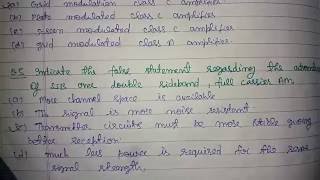 (a) Grid modulation class C amplifier
(b) Plate modulated class C amplifier
(c) Screen modulated class C amplifier
(d) grid modulated class A amplifier.
Indicate the false statement regarding the advantages
of SSB one double sideband, full carrier AM.
(a) More channel space is available
(b) The signal is more noise resistant
(c) Transmitter circuits must be more stable giving
better reception
(d) much less power is required for the same
signal strength,